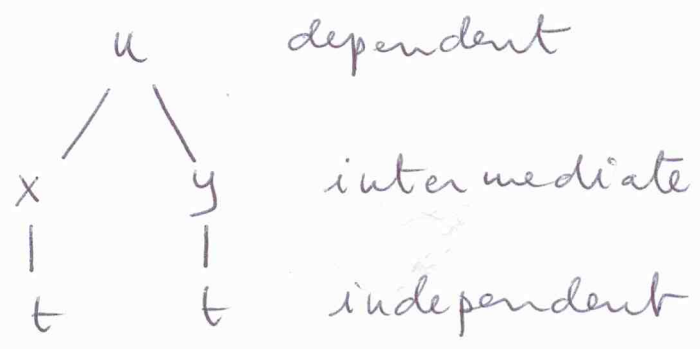 u dependent
x y intermediate
t t independent